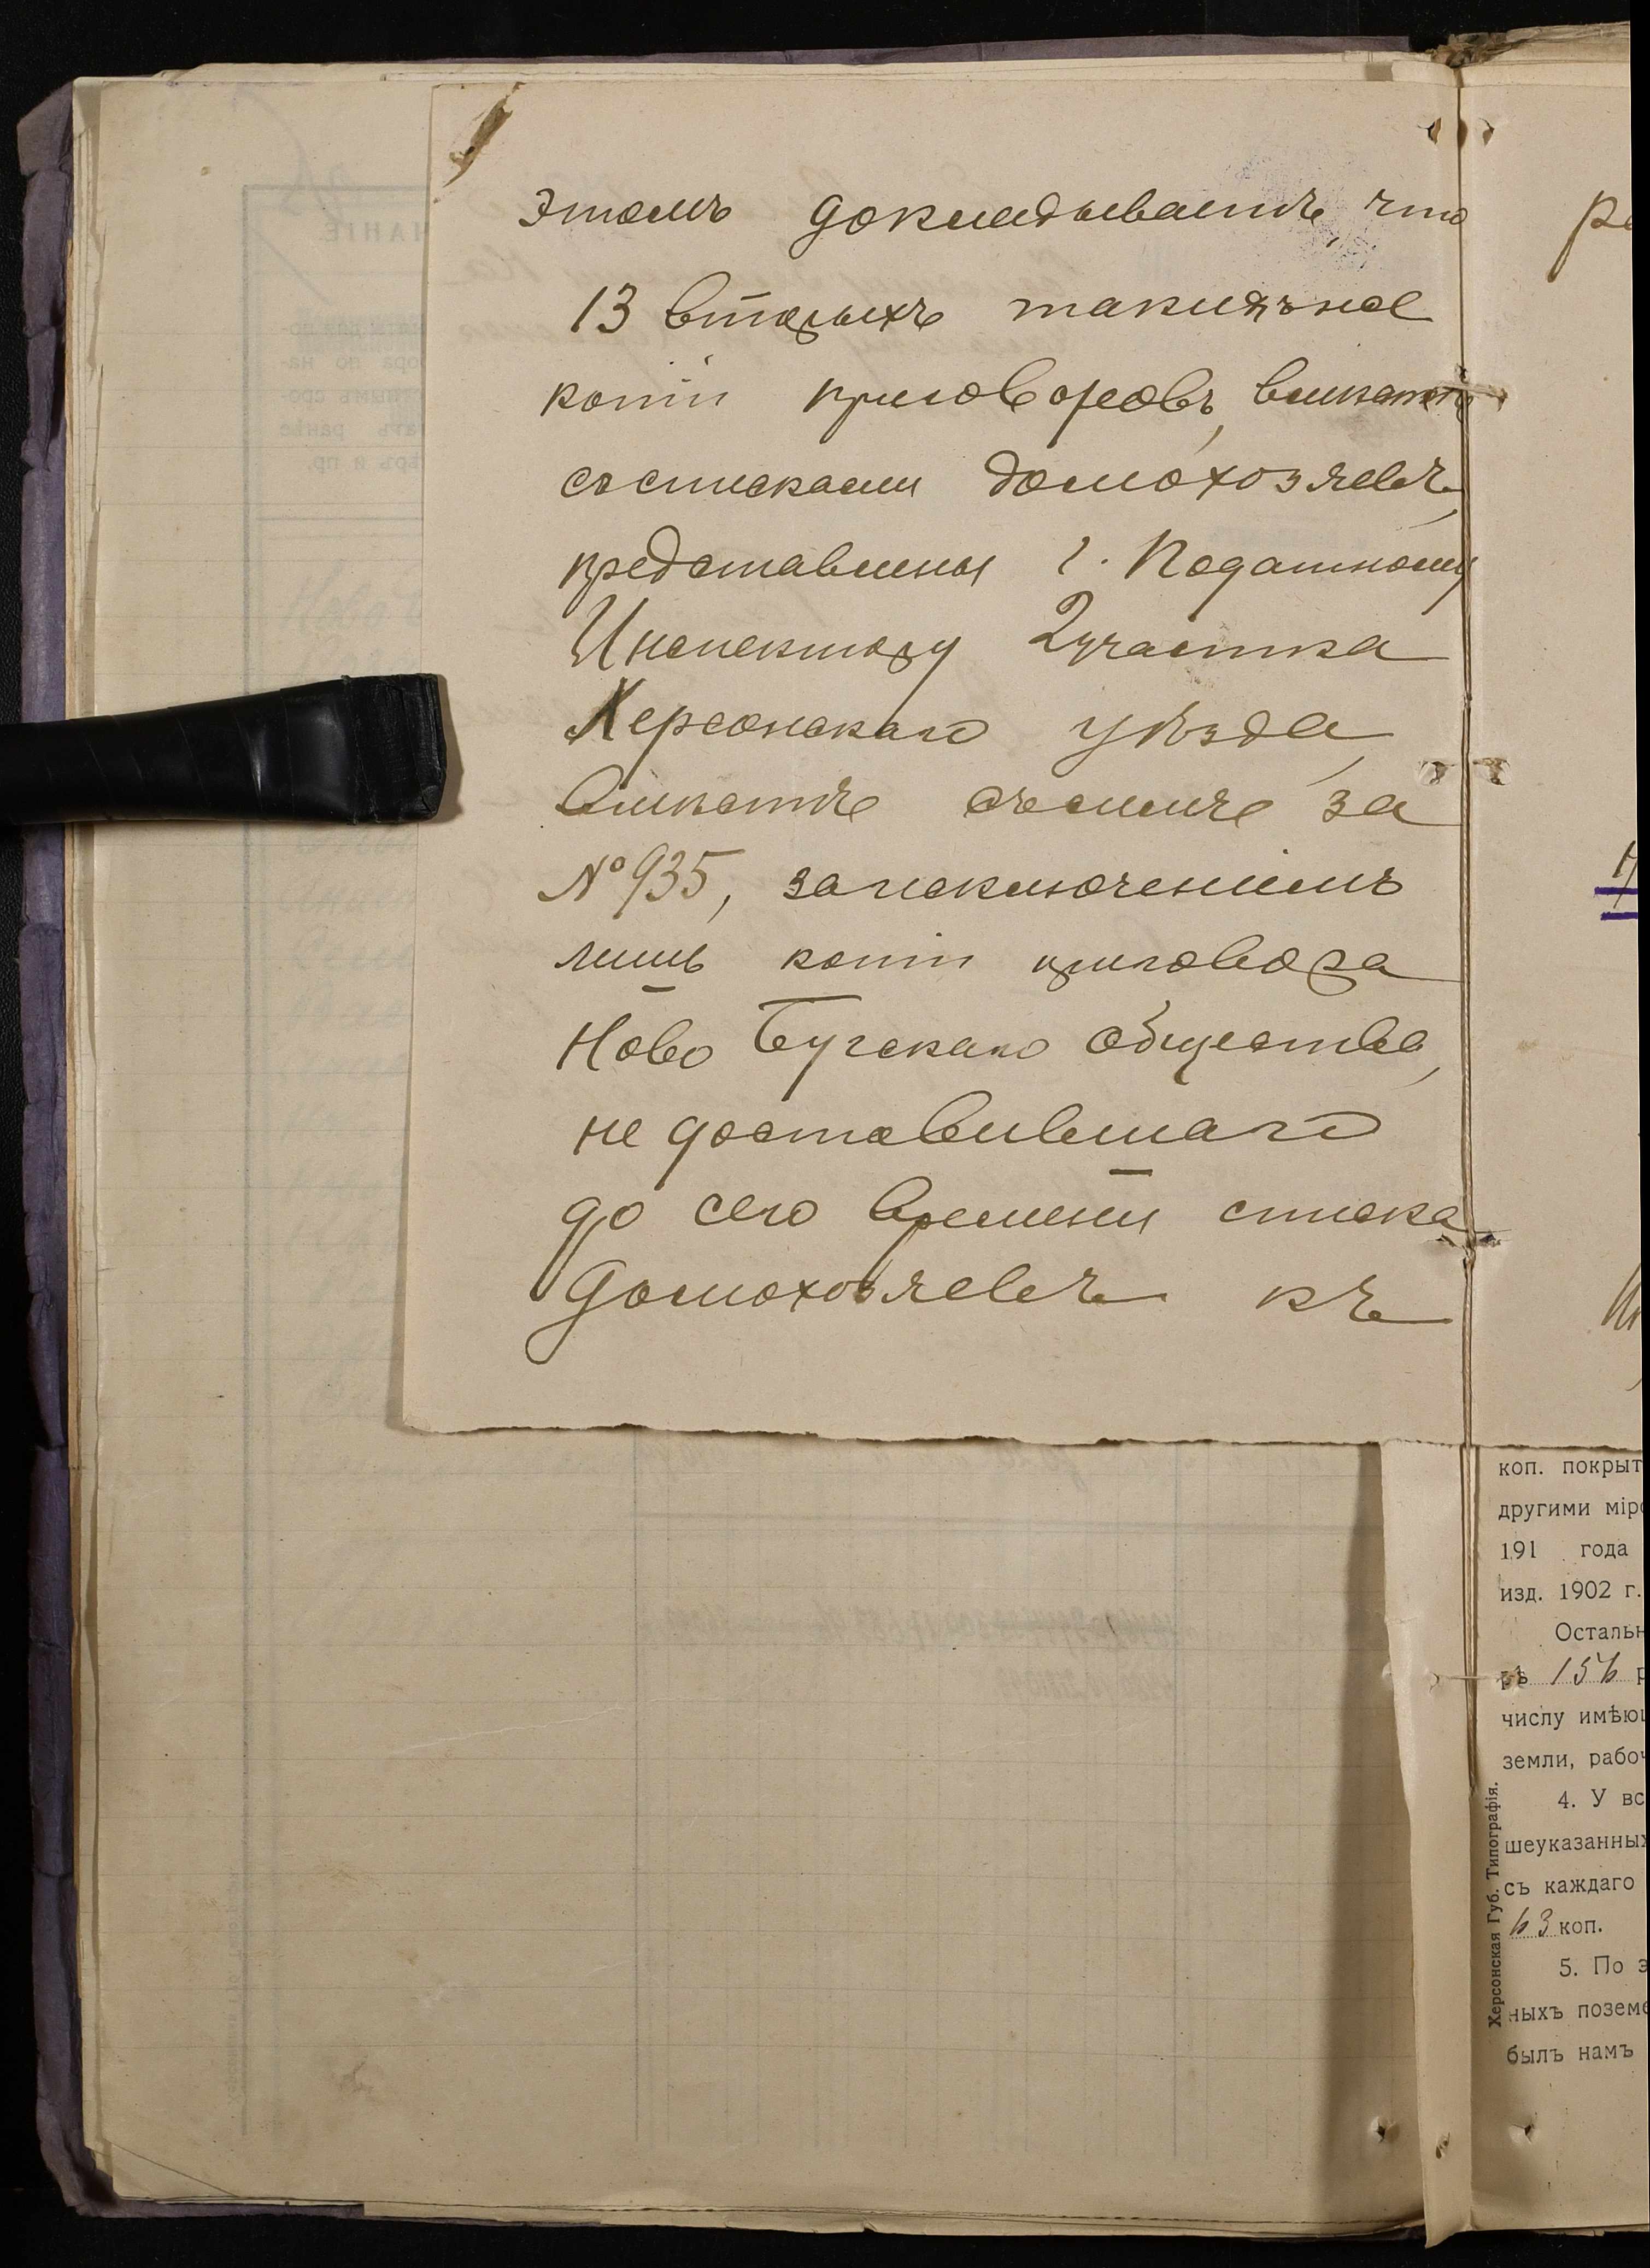 этомъ докладываетъ, что
13 вторыхъ такихъ же
копіи приговоровъ, вмѣстѣ
съ списками домохозяевъ,
представлены г. Податному
Инспектору 2 участка
Херсонскаго уѣзда,
вмѣстѣ съ симъ за
№ 935, за исключеніемъ
лишь копіи приговора
Ново Бугскаго общества,
не доставившаго
до сего времени списка
домохозяевъ къ
коп. покрыт
другими мір
191 года
изд. 1902 г.
Остальн
рѣ 156 р
числу имѣю
земли, рабо
4. У вс
шеуказанных
съ каждаго
63 коп.
5. По э
ныхъ позем
былъ намъ
Херсонская Губ. Типографія.